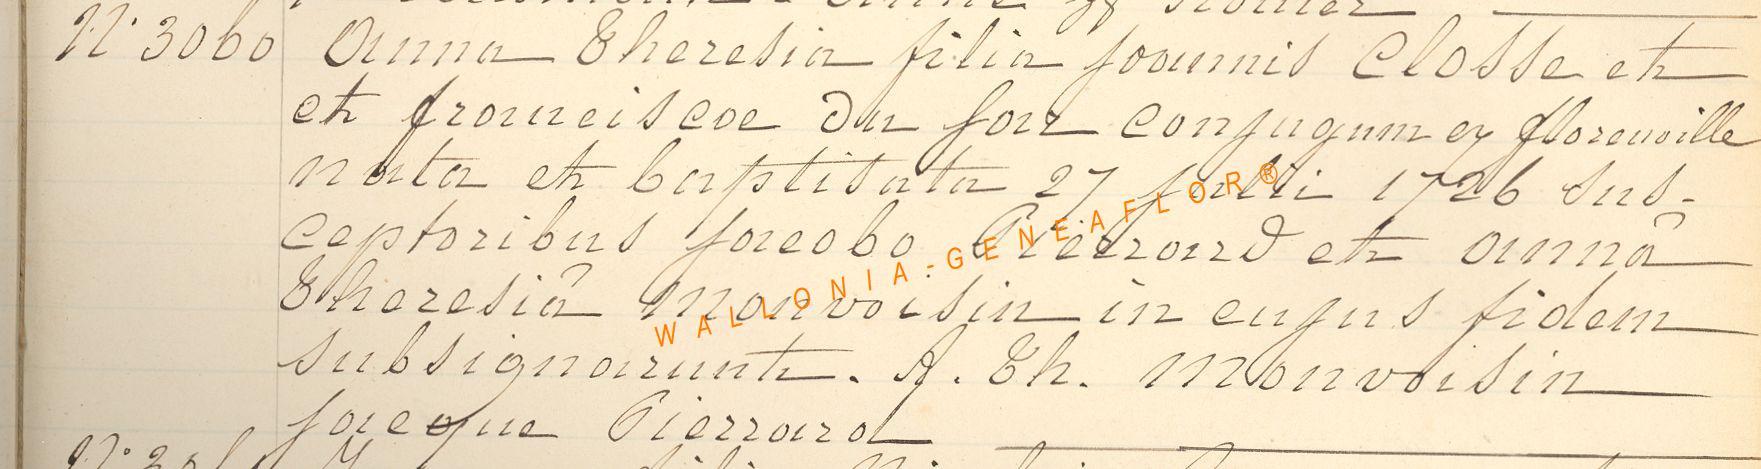 N° 3060 Anna Theresia filia Joannis Closse et
et franciscoe du four conjugum ex florenville
nata et baptisata 27 julii 1726 sus-
ceptoribus jacobo Pierrard et annâ
Theresiâ Monvoisin in cujus fidem
subsignarunt. A. Th. Monvoisin
jacque Pierrard
WALLONIA-GENEAFLOR®